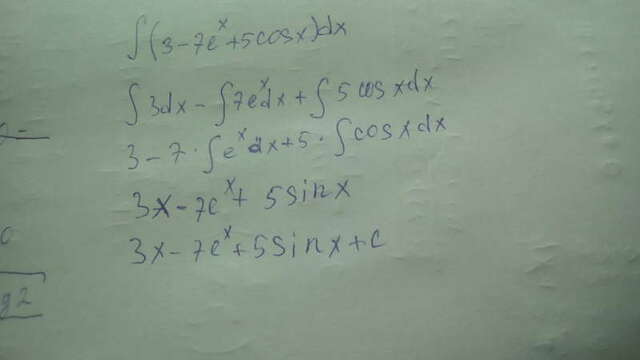 ∫(3-7e^x+5cosx)dx
∫3dx - ∫7e^x dx + ∫5 cos x dx
3 - 7 · ∫e^x dx + 5 · ∫cos x dx
3x - 7e^x + 5 sin x
3x - 7e^x + 5 sin x + c
g2